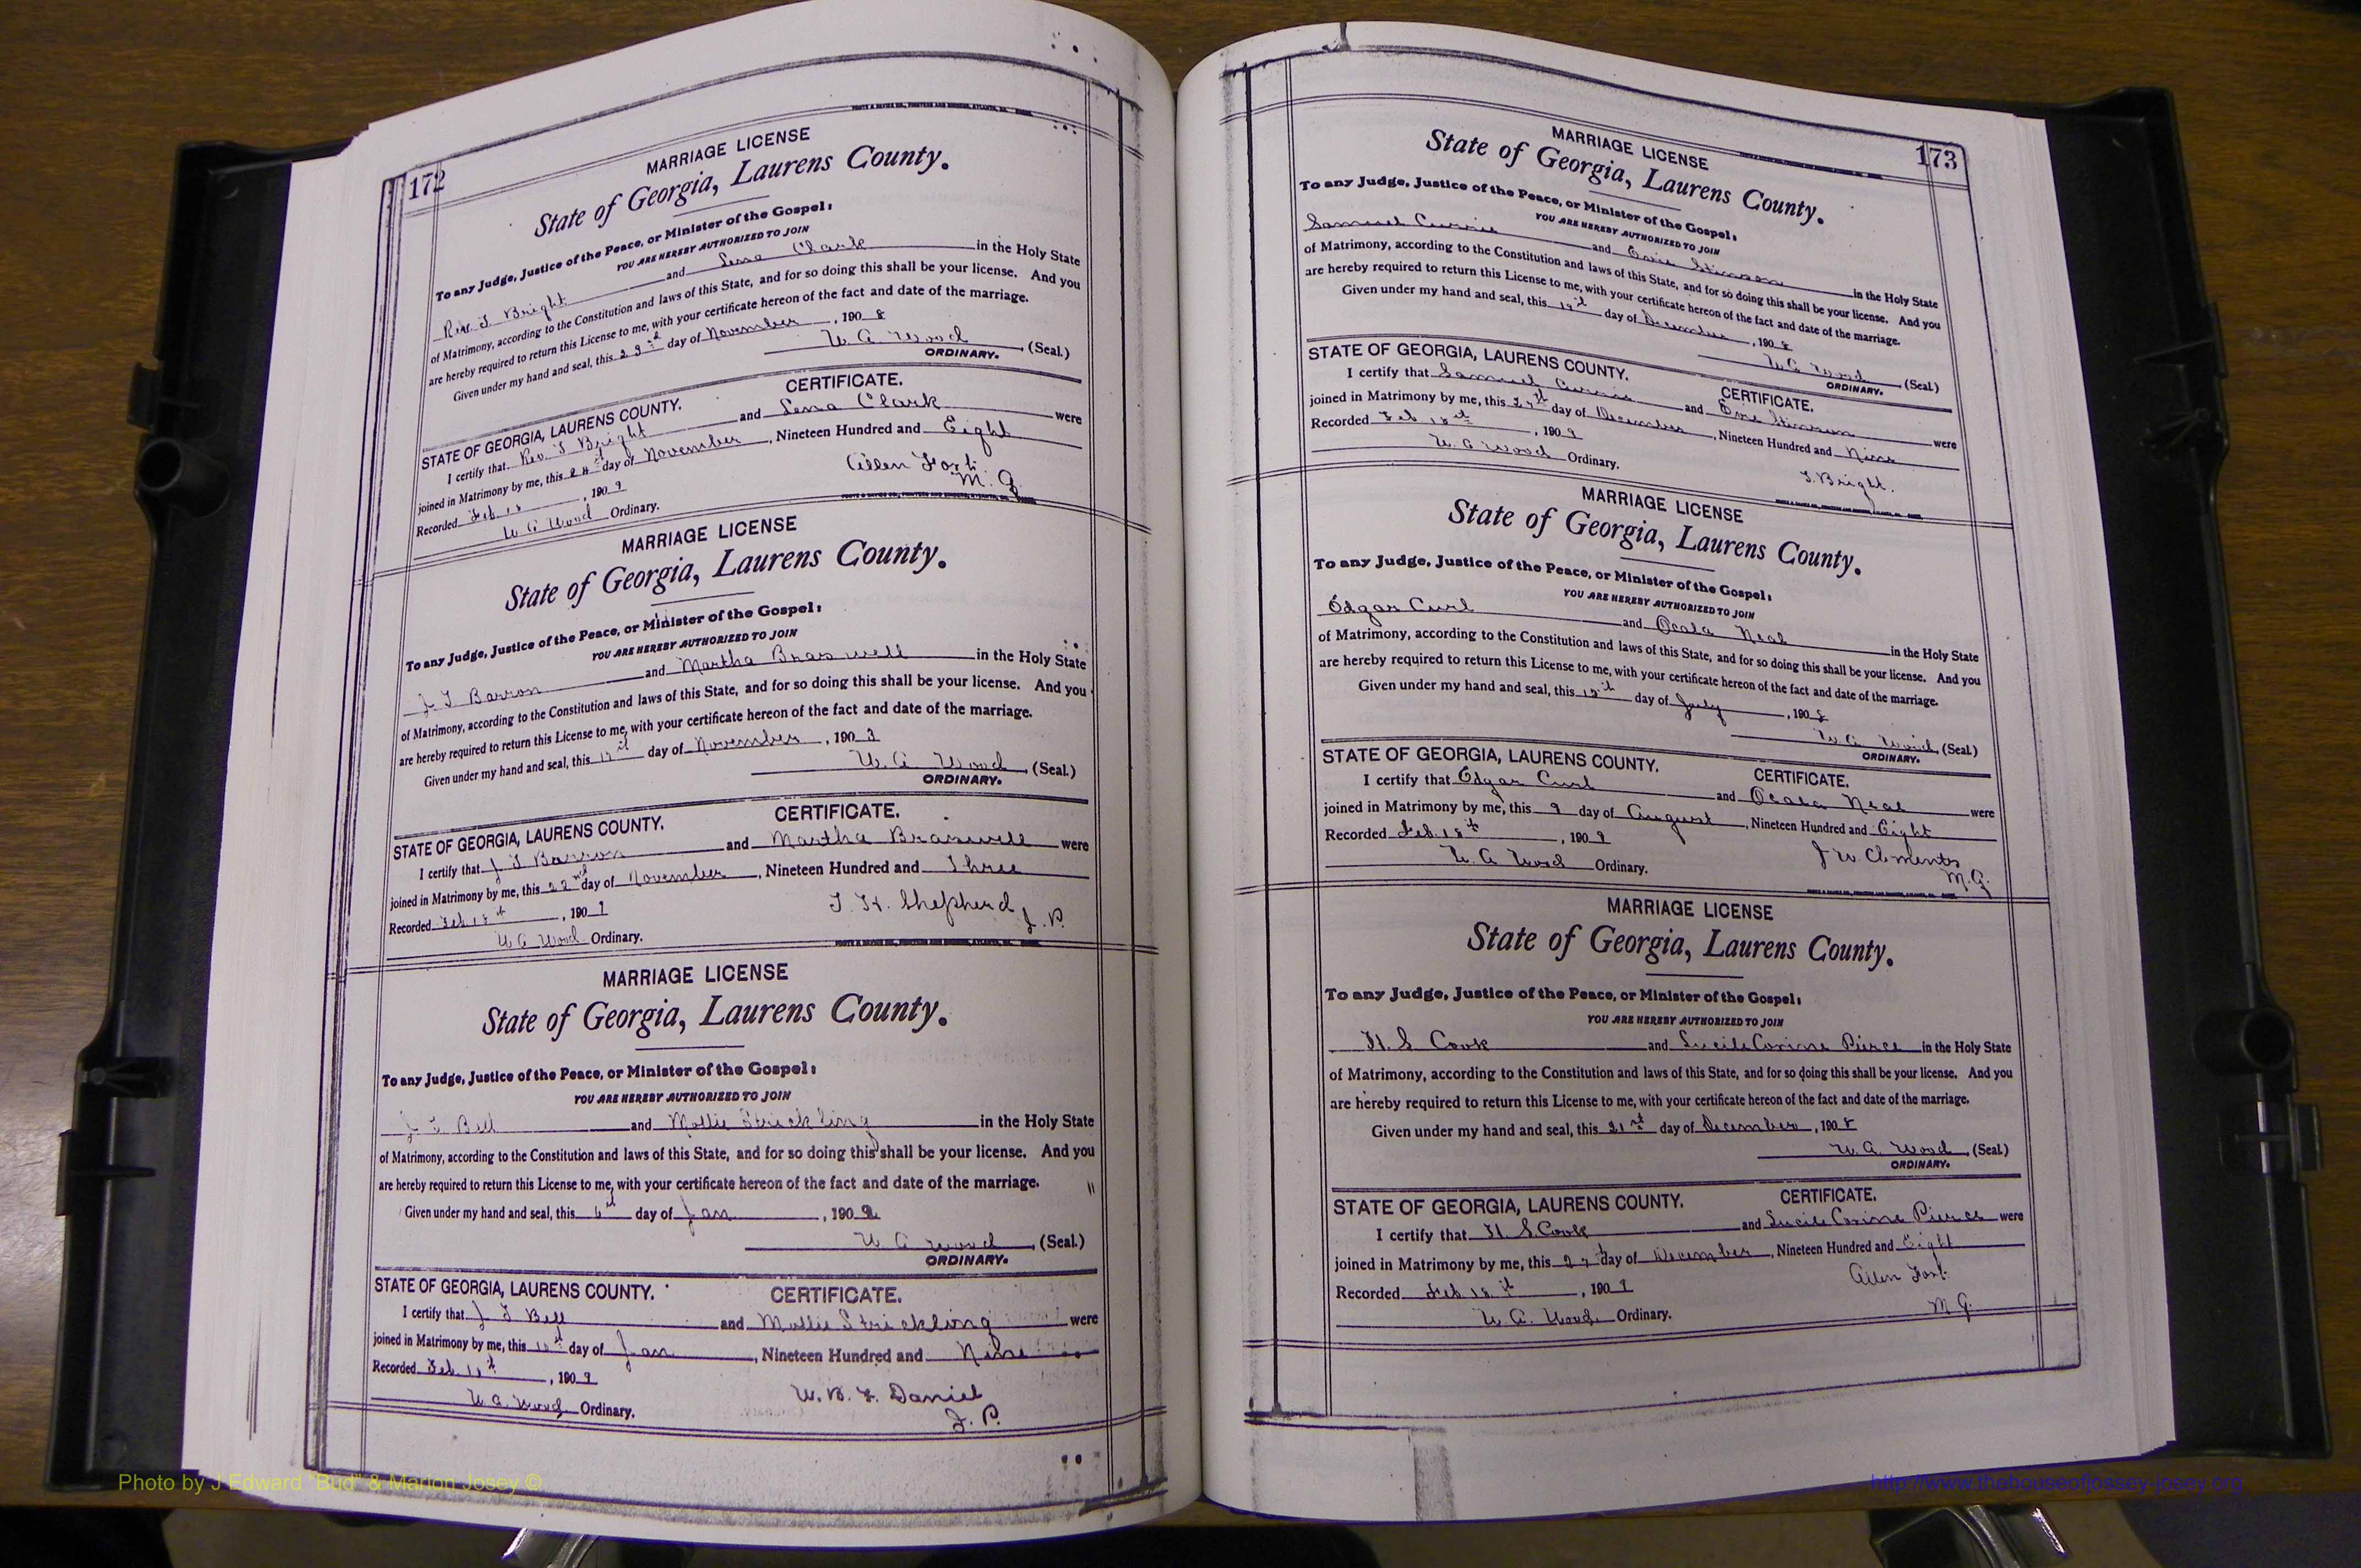 172
MARRIAGE LICENSE
State of Georgia, Laurens County.
To any Judge, Justice of the Peace, or Minister of the Gospel:
YOU ARE HEREBY AUTHORIZED TO JOIN
Rev. T Bright and Lena Clark in the Holy State
of Matrimony, according to the Constitution and laws of this State, and for so doing this shall be your license. And you
are hereby required to return this License to me, with your certificate hereon of the fact and date of the marriage.
Given under my hand and seal, this 23rd day of November, 1908
W A Wood (Seal.)
ORDINARY.
STATE OF GEORGIA, LAURENS COUNTY. CERTIFICATE.
I certify that Rev. T Bright and Lena Clark were
joined in Matrimony by me, this 24th day of November, Nineteen Hundred and Eight
Recorded Feb 18, 1909 Allen Fort
W A Wood Ordinary. M. G
MARRIAGE LICENSE
State of Georgia, Laurens County.
To any Judge, Justice of the Peace, or Minister of the Gospel:
YOU ARE HEREBY AUTHORIZED TO JOIN
J T Barron and Martha Braswell in the Holy State
of Matrimony, according to the Constitution and laws of this State, and for so doing this shall be your license. And you
are hereby required to return this License to me, with your certificate hereon of the fact and date of the marriage.
Given under my hand and seal, this day of November, 1903
W. A Wood (Seal.)
ORDINARY.
STATE OF GEORGIA, LAURENS COUNTY. CERTIFICATE.
I certify that J T Barron and Martha Braswell were
joined in Matrimony by me, this 22nd day of November, Nineteen Hundred and Three
Recorded Feb 18th, 1909 T. H. Shepherd J. P.
W A Wood Ordinary.
MARRIAGE LICENSE
State of Georgia, Laurens County.
To any Judge, Justice of the Peace, or Minister of the Gospel:
YOU ARE HEREBY AUTHORIZED TO JOIN
J T Bell and Mollie Strickling in the Holy State
of Matrimony, according to the Constitution and laws of this State, and for so doing this shall be your license. And you
are hereby required to return this License to me, with your certificate hereon of the fact and date of the marriage.
Given under my hand and seal, this 6th day of Jan, 1909
W A Wood (Seal.)
ORDINARY.
STATE OF GEORGIA, LAURENS COUNTY. CERTIFICATE.
I certify that J T Bell and Mollie Strickling were
joined in Matrimony by me, this day of Jan, Nineteen Hundred and Nine
Recorded Feb 18th, 1909 W. B. F. Daniel
W. A. Wood Ordinary. J. P.
173
MARRIAGE LICENSE
State of Georgia, Laurens County.
To any Judge, Justice of the Peace, or Minister of the Gospel:
YOU ARE HEREBY AUTHORIZED TO JOIN
Samuel Currie and Stinson in the Holy State
of Matrimony, according to the Constitution and laws of this State, and for so doing this shall be your license. And you
are hereby required to return this License to me, with your certificate hereon of the fact and date of the marriage.
Given under my hand and seal, this day of December, 1908
W A Wood (Seal.)
ORDINARY.
STATE OF GEORGIA, LAURENS COUNTY. CERTIFICATE.
I certify that Samuel Currie and Stinson were
joined in Matrimony by me, this 27th day of December, Nineteen Hundred and Nine
Recorded Feb 18th, 1909
W A Wood Ordinary. T. Bright.
MARRIAGE LICENSE
State of Georgia, Laurens County.
To any Judge, Justice of the Peace, or Minister of the Gospel:
YOU ARE HEREBY AUTHORIZED TO JOIN
Edgar Curl and Ocala Neal in the Holy State
of Matrimony, according to the Constitution and laws of this State, and for so doing this shall be your license. And you
are hereby required to return this License to me, with your certificate hereon of the fact and date of the marriage.
Given under my hand and seal, this day of July, 1908
W A Wood (Seal.)
ORDINARY.
STATE OF GEORGIA, LAURENS COUNTY. CERTIFICATE.
I certify that Edgar Curl and Ocala Neal were
joined in Matrimony by me, this 9 day of August, Nineteen Hundred and Eight
Recorded Feb. 18th, 1909 J W Clements
W A Wood Ordinary. M. G.
MARRIAGE LICENSE
State of Georgia, Laurens County.
To any Judge, Justice of the Peace, or Minister of the Gospel:
YOU ARE HEREBY AUTHORIZED TO JOIN
H. S Cook and Lucile Corine Pierce in the Holy State
of Matrimony, according to the Constitution and laws of this State, and for so doing this shall be your license. And you
are hereby required to return this License to me, with your certificate hereon of the fact and date of the marriage.
Given under my hand and seal, this 21st day of December, 1908
W. A. Wood (Seal.)
ORDINARY.
STATE OF GEORGIA, LAURENS COUNTY. CERTIFICATE.
I certify that H. S. Cook and Lucile Corine Pierce were
joined in Matrimony by me, this 27 day of December, Nineteen Hundred and Eight
Recorded Feb 18th, 1909 Allen Fort
W. A. Wood Ordinary. M G.
Photo by J Edward "Bud" & Marion Josey ©
http://www.thehouseofjossey-josey.org